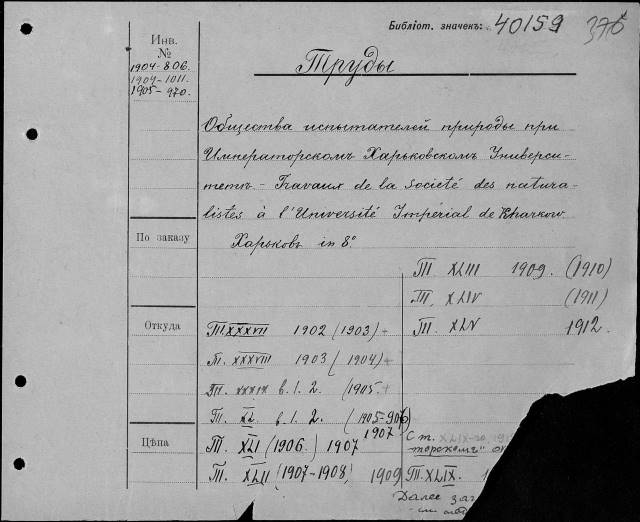 Библіот. значекъ: 40159 376
Инв.
№
1904-806.
1904-1011.
1905-970.
Труды
Общества испытателей природы при
Императорскомъ Харьковскомъ Универси-
тетѣ. - Travaux de la Société des natura-
listes à l'Université Impérial de Kharkow.
Харьковъ in 8°
По заказу
Откуда
Цѣна
Т. XXXVII 1902 (1903) +
Т. XXXVIII 1903 (1904) +
Т. XXXIX в. 1. 2. (1905 +
Т. XL в. 1. 2. (1905-906)
Т. XLI (1906.) 1907 1907
Т. XLII (1907-1908) 1909
Т. XLIII 1909. (1910)
Т. XLIV (1911)
Т. XLV 1912.
С т. XLIX-го, 191
торскомъ"
Т. XLIX. 1
Далее